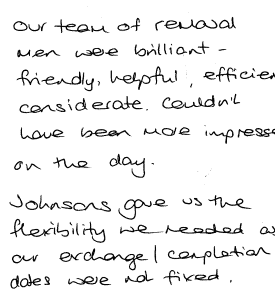 our team of removal
men were brilliant -
friendly, helpful, efficien
considerate. Couldn't
have been more impresse
on the day.
Johnsons gave us the
flexibility we needed as
our exchange/completion
dates were not fixed.